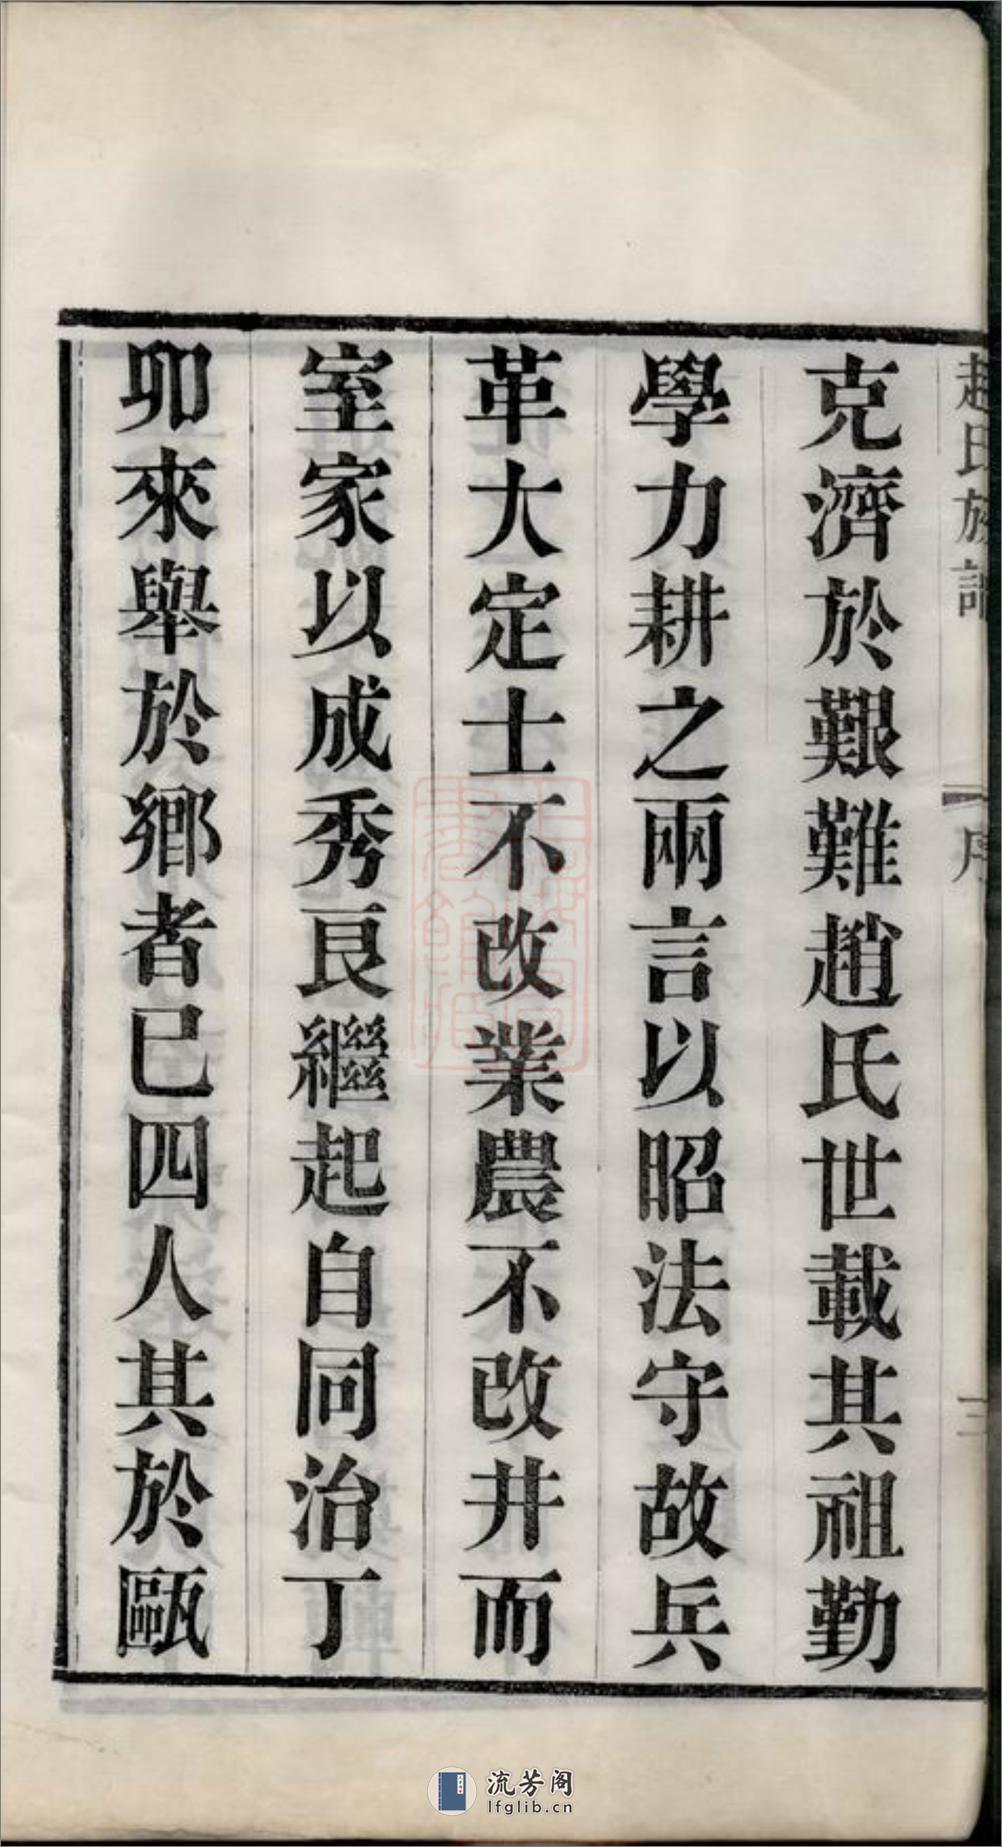 趙氏族譜
序
三
克濟於艱難趙氏世載其祖勤
學力耕之兩言以昭法守故兵
革大定士不改業農不改井而
室家以成秀艮繼起自同治丁
卯來舉於鄉者已四人其於甌
流芳阁
lfglib.cn